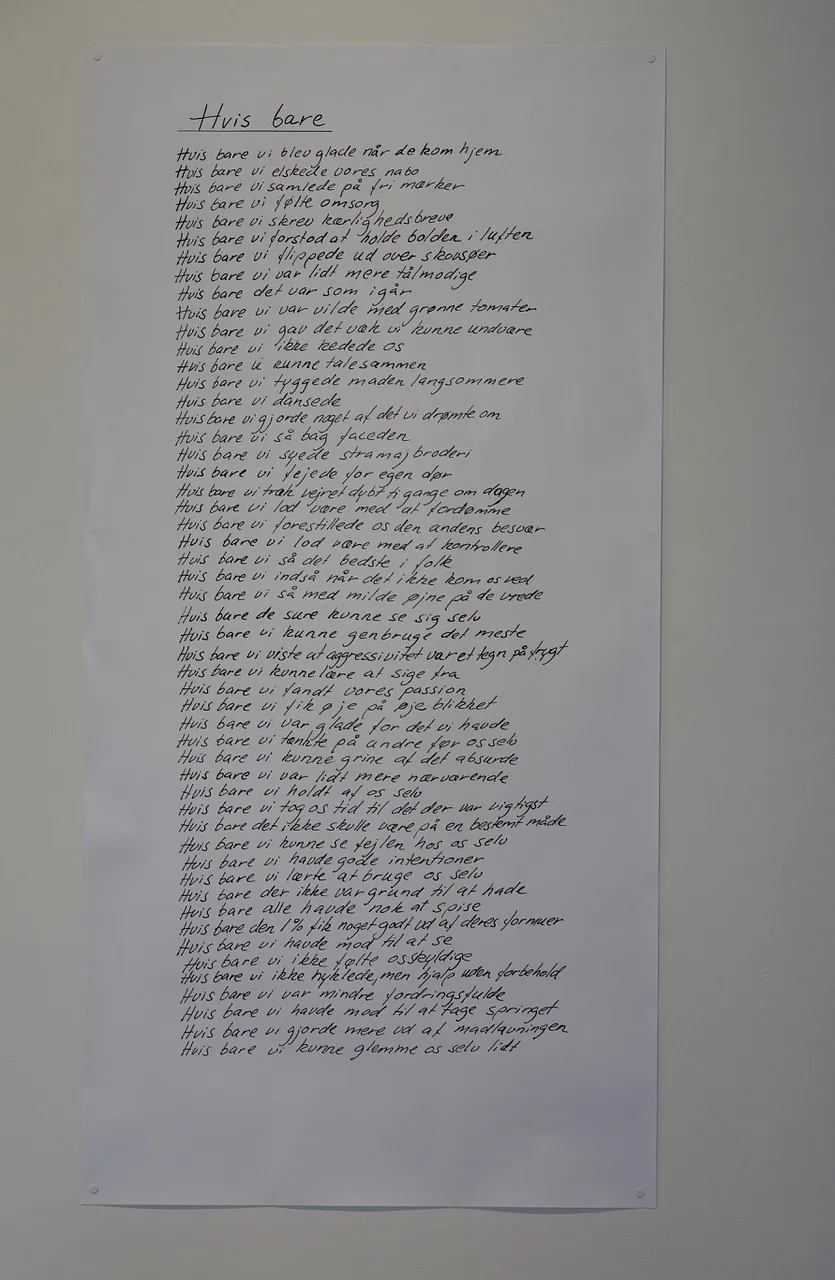 Hvis bare
Hvis bare vi blev glade når de kom hjem
Hvis bare vi elskede vores nabo
Hvis bare vi samlede på fri mærker
Hvis bare vi følte omsorg
Hvis bare vi skrev kærlighedsbreve
Hvis bare vi forstod at holde bolden i luften
Hvis bare vi flippede ud over skovsøer
Hvis bare vi var lidt mere tålmodige
Hvis bare det var som igår
Hvis bare vi var vilde med grønne tomater
Hvis bare vi gav det væk vi kunne undvære
Hvis bare vi ikke kedede os
Hvis bare vi kunne tale sammen
Hvis bare vi tyggede maden langsommere
Hvis bare vi dansede
Hvis bare vi gjorde noget af det vi drømte om
Hvis bare vi så bag faceden
Hvis bare vi syede stramajbroderi
Hvis bare vi fejede for egen dør
Hvis bare vi trak vejret dybt ti gange om dagen
Hvis bare vi lod være med at fordømme
Hvis bare vi forestillede os den andens besvær
Hvis bare vi lod være med at kontrollere
Hvis bare vi så det bedste i folk
Hvis bare vi indså når det ikke kom os ved
Hvis bare vi så med milde øjne på de vrede
Hvis bare de sure kunne se sig selv
Hvis bare vi kunne genbruge det meste
Hvis bare vi viste at aggressivitet var et tegn på frygt
Hvis bare vi kunne lære at sige fra
Hvis bare vi fandt vores passion
Hvis bare vi fik øje på øje blikket
Hvis bare vi var glade for det vi havde
Hvis bare vi tænkte på andre før os selv
Hvis bare vi kunne grine af det absurde
Hvis bare vi var lidt mere nærværende
Hvis bare vi holdt af os selv
Hvis bare vi tog os tid til det der var vigtigst
Hvis bare det ikke skulle være på en bestemt måde
Hvis bare vi kunne se fejlen hos os selv
Hvis bare vi havde gode intentioner
Hvis bare vi lærte at bruge os selv
Hvis bare der ikke var grund til at hade
Hvis bare alle havde nok at spise
Hvis bare den 1% fik noget godt ud af deres formuer
Hvis bare vi havde mod til at se
Hvis bare vi ikke følte os skyldige
Hvis bare vi ikke hyklede, men hjalp uden forbehold
Hvis bare vi var mindre fordringsfulde
Hvis bare vi havde mod til at tage springet
Hvis bare vi gjorde mere ud af madlavningen
Hvis bare vi kunne glemme os selv lidt